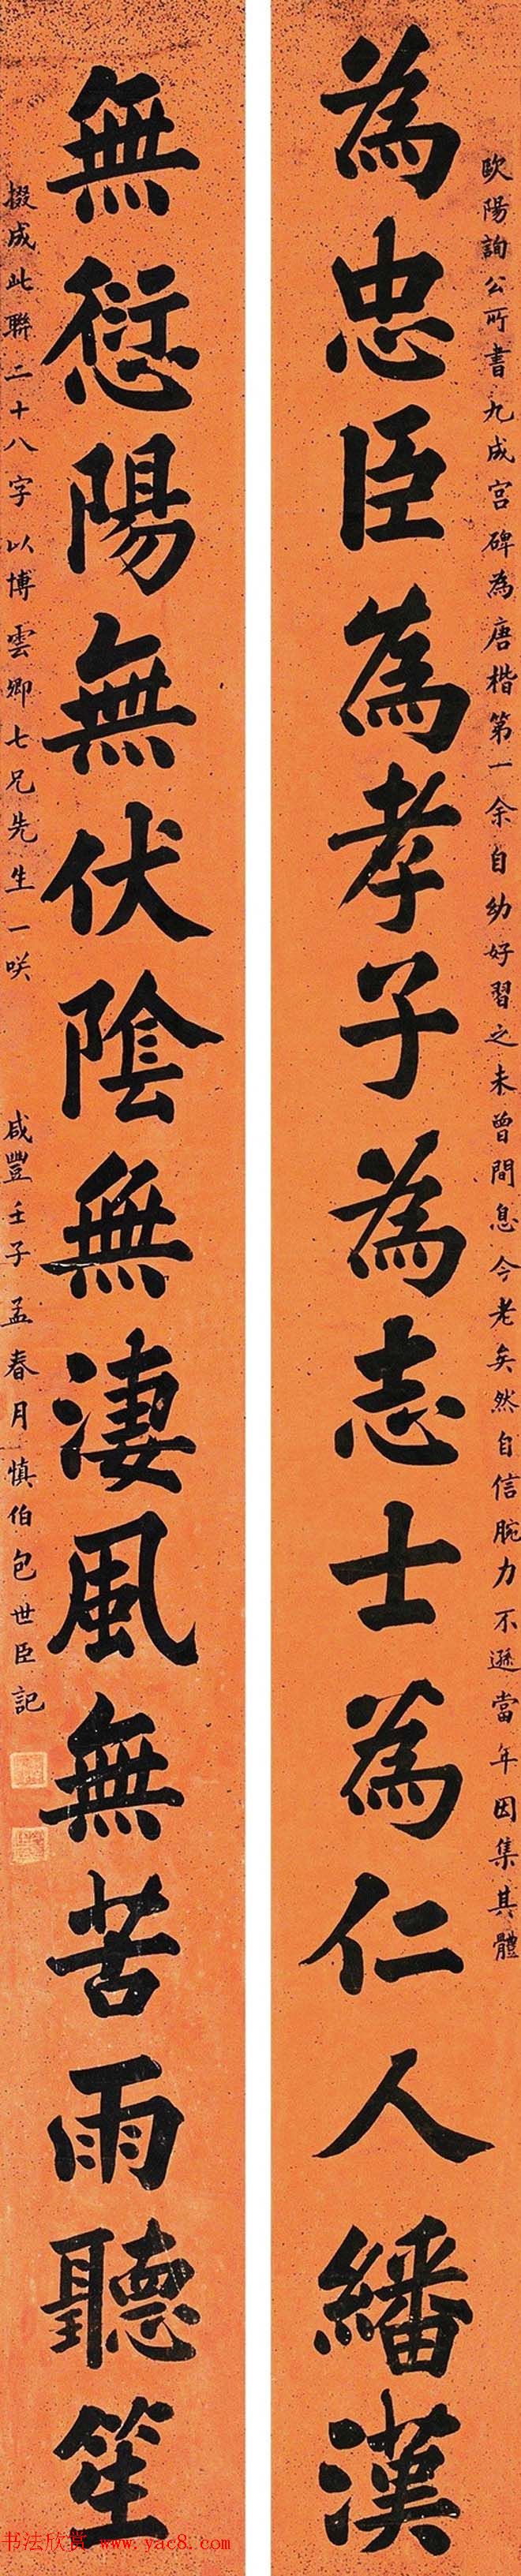 歐陽詢公所書九成宮碑為唐楷第一余自幼好習之未曾間息今老矣然自信腕力不遜當年因集其體
為忠臣為孝子為志士為仁人繙漢
無愆陽無伏陰無淒風無苦雨聽笙
掇成此聯二十八字以博雲卿七兄先生一咲
咸豐壬子孟春月慎伯包世臣記
书法欣赏 www.yac8.com